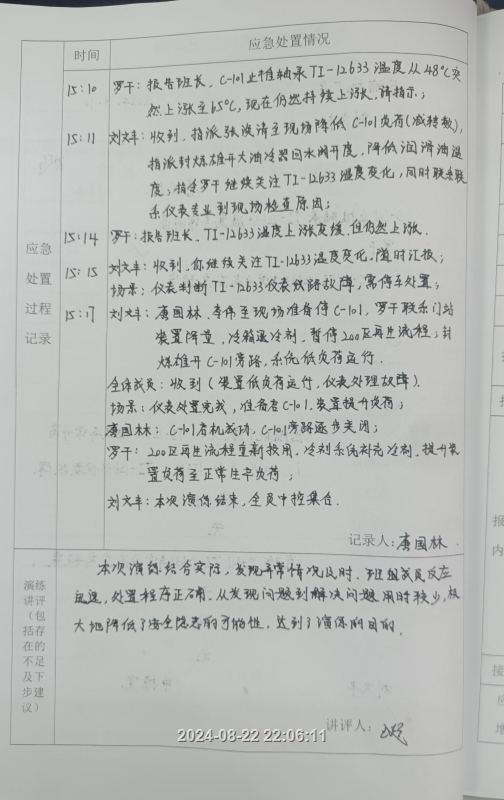 应急处置情况
时间
15:10 罗干：报告班长，C-101止推轴承TI-12633温度从48℃突
然上涨至65℃，现在仍然持续上涨，请指示；
15:11 刘文丰：收到，指派张泼清至现场降低C-101负荷(减转数)，
指派封炼雄开大油冷器回水阀开度，降低润滑油温
度；指令罗干继续关注TI-12633温度变化，同时联系联
系仪表专业到现场检查原因；
15:14 罗干：报告班长，TI-12633温度上涨变缓，但仍然上涨．
15:15 刘文丰：收到，你继续关注TI-12633温度变化，随时汇报；
场景：仪表判断TI-12633仪表线路故障，需停车处置；
15:17 刘文丰：唐国林、李伟至现场准备停C-101，罗干联系门站
装置降量，冷箱退冷剂，暂停200区再生流程；封
炼雄开C-101旁路，系统低负荷运行．
全体成员：收到(装置低负荷运行，仪表处理故障)．
场景：仪表处置完成，准备启C-101，装置提升负荷；
唐国林：C-101启机成功，C-101旁路逐步关闭；
罗干：200区再生流程重新投用，冷剂系统补充冷剂，提升装
置负荷至正常生产负荷；
刘文丰：本次演练结束，全员中控集合．
应急
处置
过程
记录
记录人：唐国林
本次演练结合实际，发现异常情况及时，班组成员反应
迅速，处置程序正确，从发现问题到解决问题用时较少，极
大地降低了安全隐患的可能性，达到了演练的目的．
演练
讲评
（包
括存
在的
不足
及下
步建
议）
讲评人：
2024-08-22 22:06:11
报
内
接